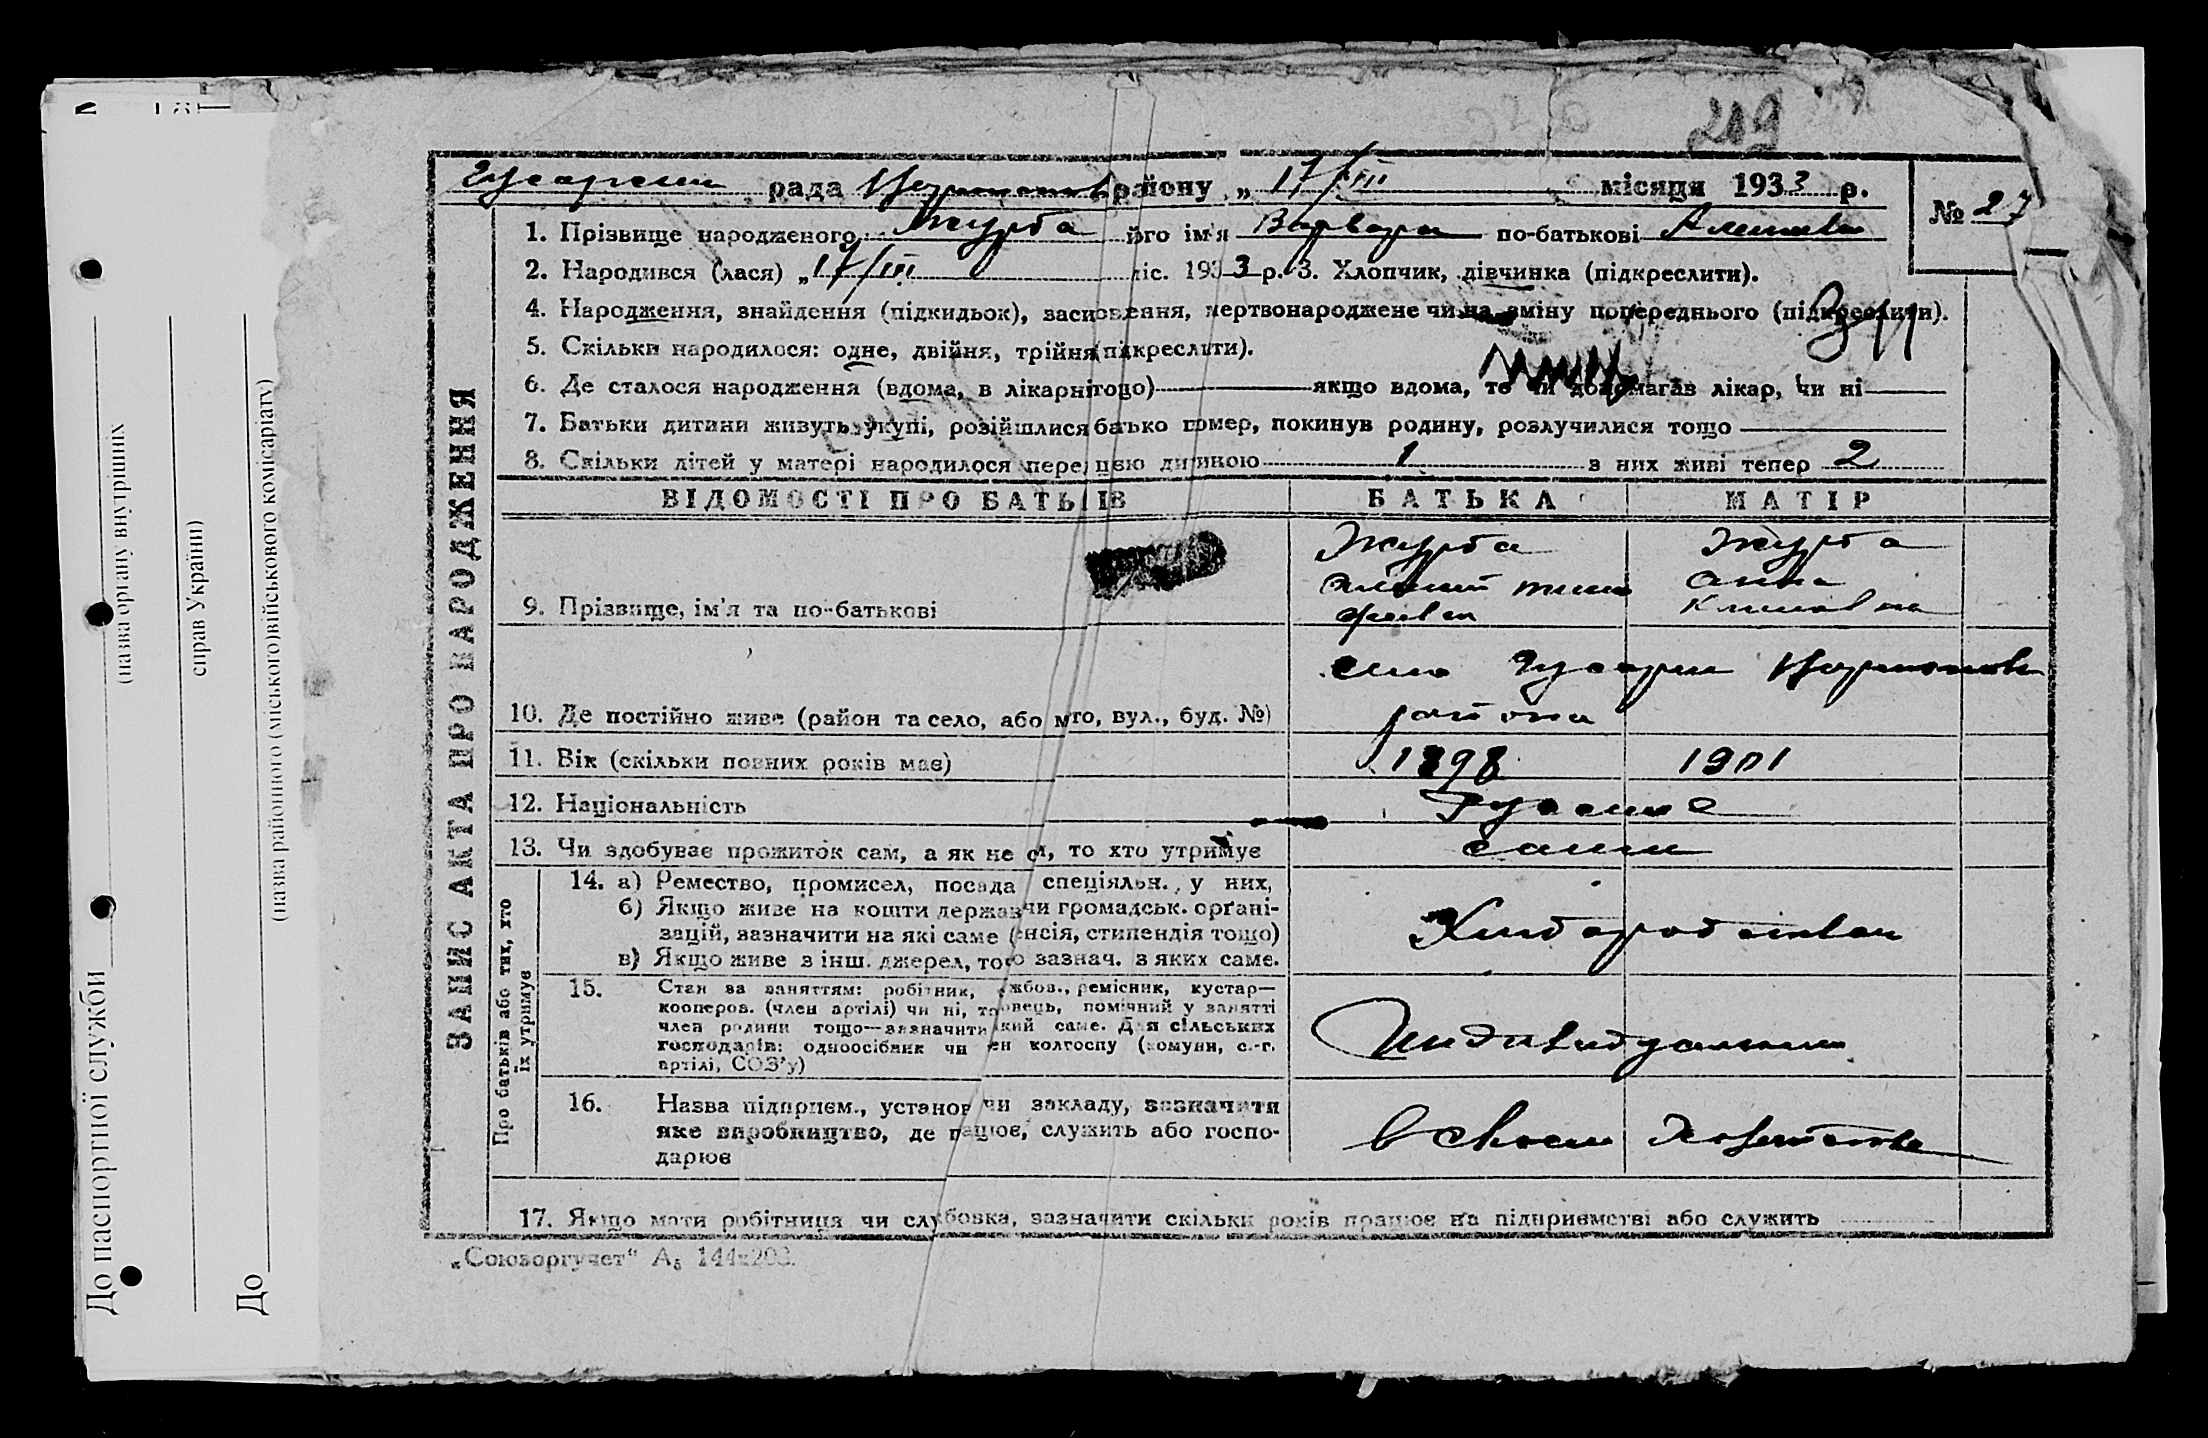 209
рада району „ 17/III місяця 1933 р.
№ 27
1. Прізвище народженого Журба його ім'я Варвара по-батькові
2. Народився (лася) „ 17/III міс. 1933 р. 3. Хлопчик, дівчинка (підкреслити).
4. Народження, знайдення (підкидьок), засиновлення, мертвонароджене чи на зміну попереднього (підкреслити).
5. Скільки народилося: одне, двійня, трійня (підкреслити).
6. Де сталося народження (вдома, в лікарні тощо) якщо вдома, то чи допомагав лікар, чи ні
7. Батьки дитини живуть укупі, розійшлися батько помер, покинув родину, розлучилися тощо
8. Скільки дітей у матері народилося перед цією дитиною 1 з них живі тепер 2
ВІДОМОСТІ ПРО БАТЬКІВ БАТЬКА МАТІР
Журба Журба
Анна
9. Прізвище, ім'я та по-батькові
село Гусарки
10. Де постійно живе (район та село, або місто, вул., буд. №) района
11. Вік (скільки повних років має) 1898 1901
12. Національність Русские
13. Чи здобуває прожиток сам, а як не сам, то хто утримує сами
14. а) Ремество, промисел, посада спеціяльн. у них,
б) Якщо живе на кошти держав чи громадськ. орґані-
зацій, зазначити на які саме (пенсія, стипендія тощо)
в) Якщо живе з інш. джерел, то зазнач. з яких саме.
Хлибаробство
15. Стан за заняттям: робітник, службов., ремісник, кустар—
кооперов. (член артілі) чи ні, торговець, помічний у занятті
член родини тощо—зазначити який саме. Для сільських
господарів: одноосібник чи член колгоспу (комуни, с.-г.
артілі, СОЗ'у)
16. Назва підприєм., установ чи закладу, зазначити
яке виробництво, де працює, служить або госпо-
дарює
в своем
17. Якщо мати робітниця чи службовка, зазначити скільки років працює на підприємстві або служить
„Союзоргучет“
ЗАПИС АКТА ПРО НАРОДЖЕННЯ
Про батьків або тих, хто
їх утримує
До паспортної служби
(назва органу внутрішніх
справ України)
До
(назва районного (міського) військового комісаріату)